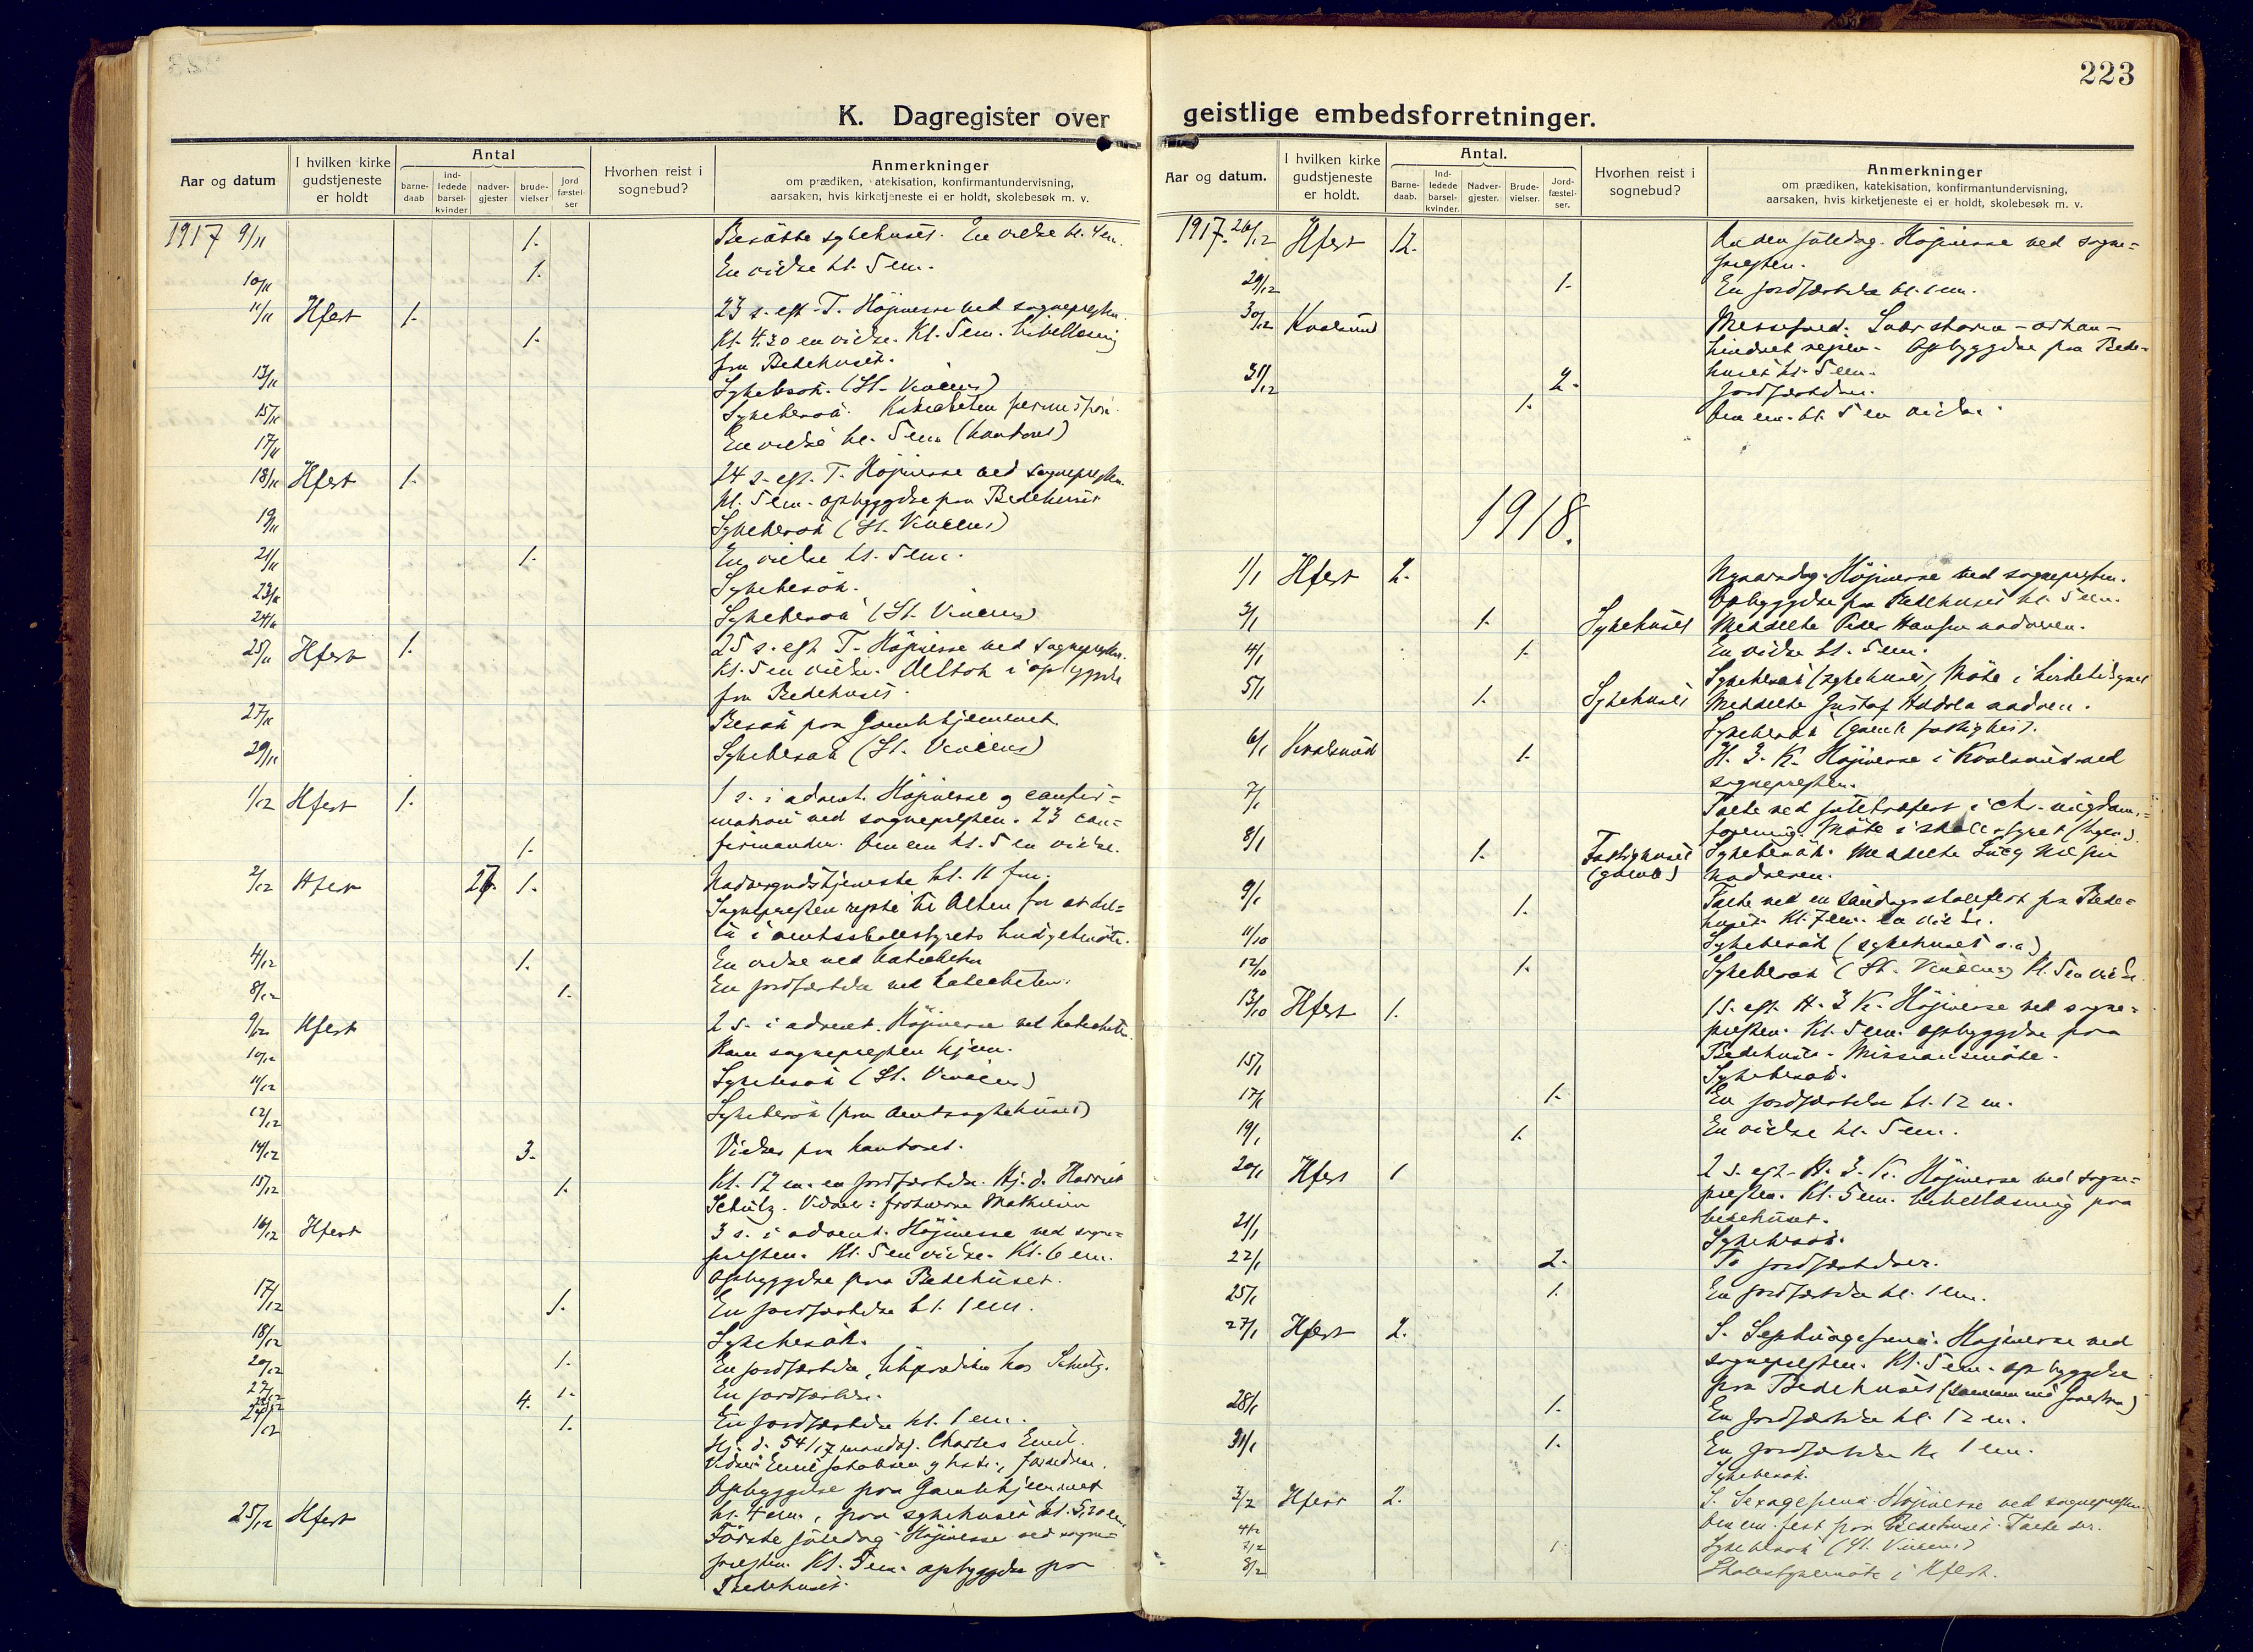 223
K. Dagregister over geistlige embedsforretninger.
Aar og datum
I hvilken kirke gudstjeneste er holdt
Antal
barne-daab
ind-ledede barsel-kvinder
nadver-gjester
brude-vielser
jord fæstel-ser
Hvorhen reist i sognebud?
Anmerkninger
om prædiken, katekisation, konfirmantundervisning,
aarsaken, hvis kirketjeneste ei er holdt, skolebesøk m. v.
1917 9/11 1. Besökte sykehuset. En vielse kl. 4 em.
10/11 1. En vielse kl. 5 em.
11/11 Hfest 1. 23 s. eft. T. Höjmesse ved sognepresten.
1. Kl. 4.30 en vielse. Kl. 5 em. bibellesning
paa Bedehuset.
13/11 Sykebesök. (St. Vincens)
15/11 Sykebesök. Katecheten
17/11 En vielse kl. 5 em (kontoret)
18/11 Hfest 1. 24 s. eft. T. Höjmesse ved sognepresten.
Kl. 5 em. opbyggelse paa Bedehuset
19/11 Sykebesök (St. Vincens)
21/11 1. En vielse kl. 5 em.
23/11 Sykebesök.
24/11 Sykebesök (St. Vincens)
25/11 Hfest 1. 25 s. eft T. Höjmesse ved sognepresten.
Kl. 5 en vielse. Deltok i opbyggelse
paa Bedehuset.
27/11 Besök paa Gamlehjemmet.
29/11 Sykebesök (St. Vincens)
1/12 Hfest 1. 1 s. i advent. Höjmesse og confir=
mation ved sognepresten. 23 con=
1. firmander. Om em kl. 5 en vielse.
2/12 Hfest 1. Nadvergudstjeneste kl. 11 fm.
Sognepresten reiste til Alten for at del=
ta i amtsskolestyrets budgetmöte.
4/12 1. En vielse ved katecheten
8/12 1. En jordfæstelse ved katecheten.
9/12 Hfest 2 s. i advent. Höjmesse ved katecheten.
10/12 Kom sognepresten hjem.
11/12 Sykebesök (St. Vincens)
12/12 Sykebesök (paa amtssykehuset)
14/12 3. Vielser paa kontoret.
15/12 1. Kl. 12 em. en jordfæstelse. Hj. d. Harriet
Schulz. Vidner: frökenerne Mathisen
16/12 Hfest 3 s. i advent. Höjmesse ved sogne=
presten. Kl. 5 en vielse. Kl. 6 em.
opbyggelse paa Bedehuset.
17/12 1. En jordfæstelse kl. 1 em.
18/12 Sykebesök.
20/12 1. En jordfæstelse, likprædiken hos Schulz.
1. En jordfæstelse.
4.
24/12 1. En jordfæstelse kl. 1 em.
Hj. d. 54/17 mandag. Charles Emil.
Vidner Emil Jakobsen og hustr., forældrene.
Opbyggelse paa Gamlehjemmet
kl. 4 em., paa sykehuset kl. 5,30 em.
25/12 Hfest Förste juledag Höjmesse ved sogne=
presten. Kl. 5 em. opbyggelse paa
Bedehuset.
Aar og datum.
I hvilken kirke gudstjeneste er holdt.
Antal.
Barne-daab.
Ind-ledede barsel-kvinder.
Nadver-gjester.
Brude-vielser.
Jord-fæstel-ser.
Hvorhen reist i sognebud?
Anmerkninger
om prædiken, katekisation, konfirmantundervisning,
aarsaken, hvis kirketjeneste ei er holdt, skolebesøk m. v.
1917. 26/12 Hfest 12. Anden juledag. Höjmesse ved sogne=
presten.
29/12 1. En jordfæstelse kl. 1 em.
30/12 Kvalsund Messefald. Svær storm - orkan -
hindret reisen. Opbyggelse paa Bede=
huset kl. 5 em.
31/12 2. Jordfæstelser.
1. Om em. kl. 5 en vielse.
1918.
1/1 Hfest 2. Nyaarsdag. Höjmesse ved sognepresten.
Opbyggelse paa Bedehuset kl. 5 em.
3/1 1. Sykehuset Meddelte Peder Hansen nadveren.
4/1 1. En vielse kl. 5 em.
Sykebesök (sykehuset) Möte i kirketilsynet
5/1 1. Sykehuset Meddelte Gustaf nadveren.
Sykebesök (gamle fattighus).
6/1 Kvalsund 1. H. 3. K. Höjmesse i Kvalsund ved
sognepresten.
7/1 Talte ved juletræfest i chr. ungdoms=
forening. Möte i skolestyret (byen)
8/1 1. Fattighuset (gamle) Sykebesök. Meddelte nadveren.
9/1 Talte ved en söndagsskolefest paa Bede=
1. huset. Kl. 7 em. en vielse.
11/10 Sykebesök (sykehuset o.a.)
12/10 1. Sykebesök (St. Vincens) Kl. 5 en vielse.
13/10 Hfest 1. 1 s. eft. H. 3 K. Höjmesse ved sogne=
presten. Kl. 5 em. opbyggelse paa
Bedehuset. Missionsmöte.
15/1 Sykebesök.
17/1 1. En jordfæstelse kl. 12 em.
19/1 1. En vielse kl. 5 em.
20/1 Hfest 1 2 s. eft. H. 3. K. Höjmesse ved sogne=
presten. Kl. 5 em. bibellæsning paa
bedehuset.
21/1 Sykebesök.
22/1 2. To jordfæstelser.
25/1 1. En jordfæstelse kl. 1 em.
27/1 Hfest 2. S. Septuagesima. Höjmesse ved
sognepresten. Kl. 5 em. opbyggelse
paa Bedehuset
28/1 1. En jordfæstelse kl. 12 em.
31/1 1. En jordfæstelse kl 1 em.
Sykebesök.
3/2 Hfest 2. S. Sexagesima Höjmesse ved sognepresten.
Om em. fest paa Bedehuset. Talte der.
4/2 Sykebesök (St. Vincens)
8/2 Skolestyremöte i Hfest.